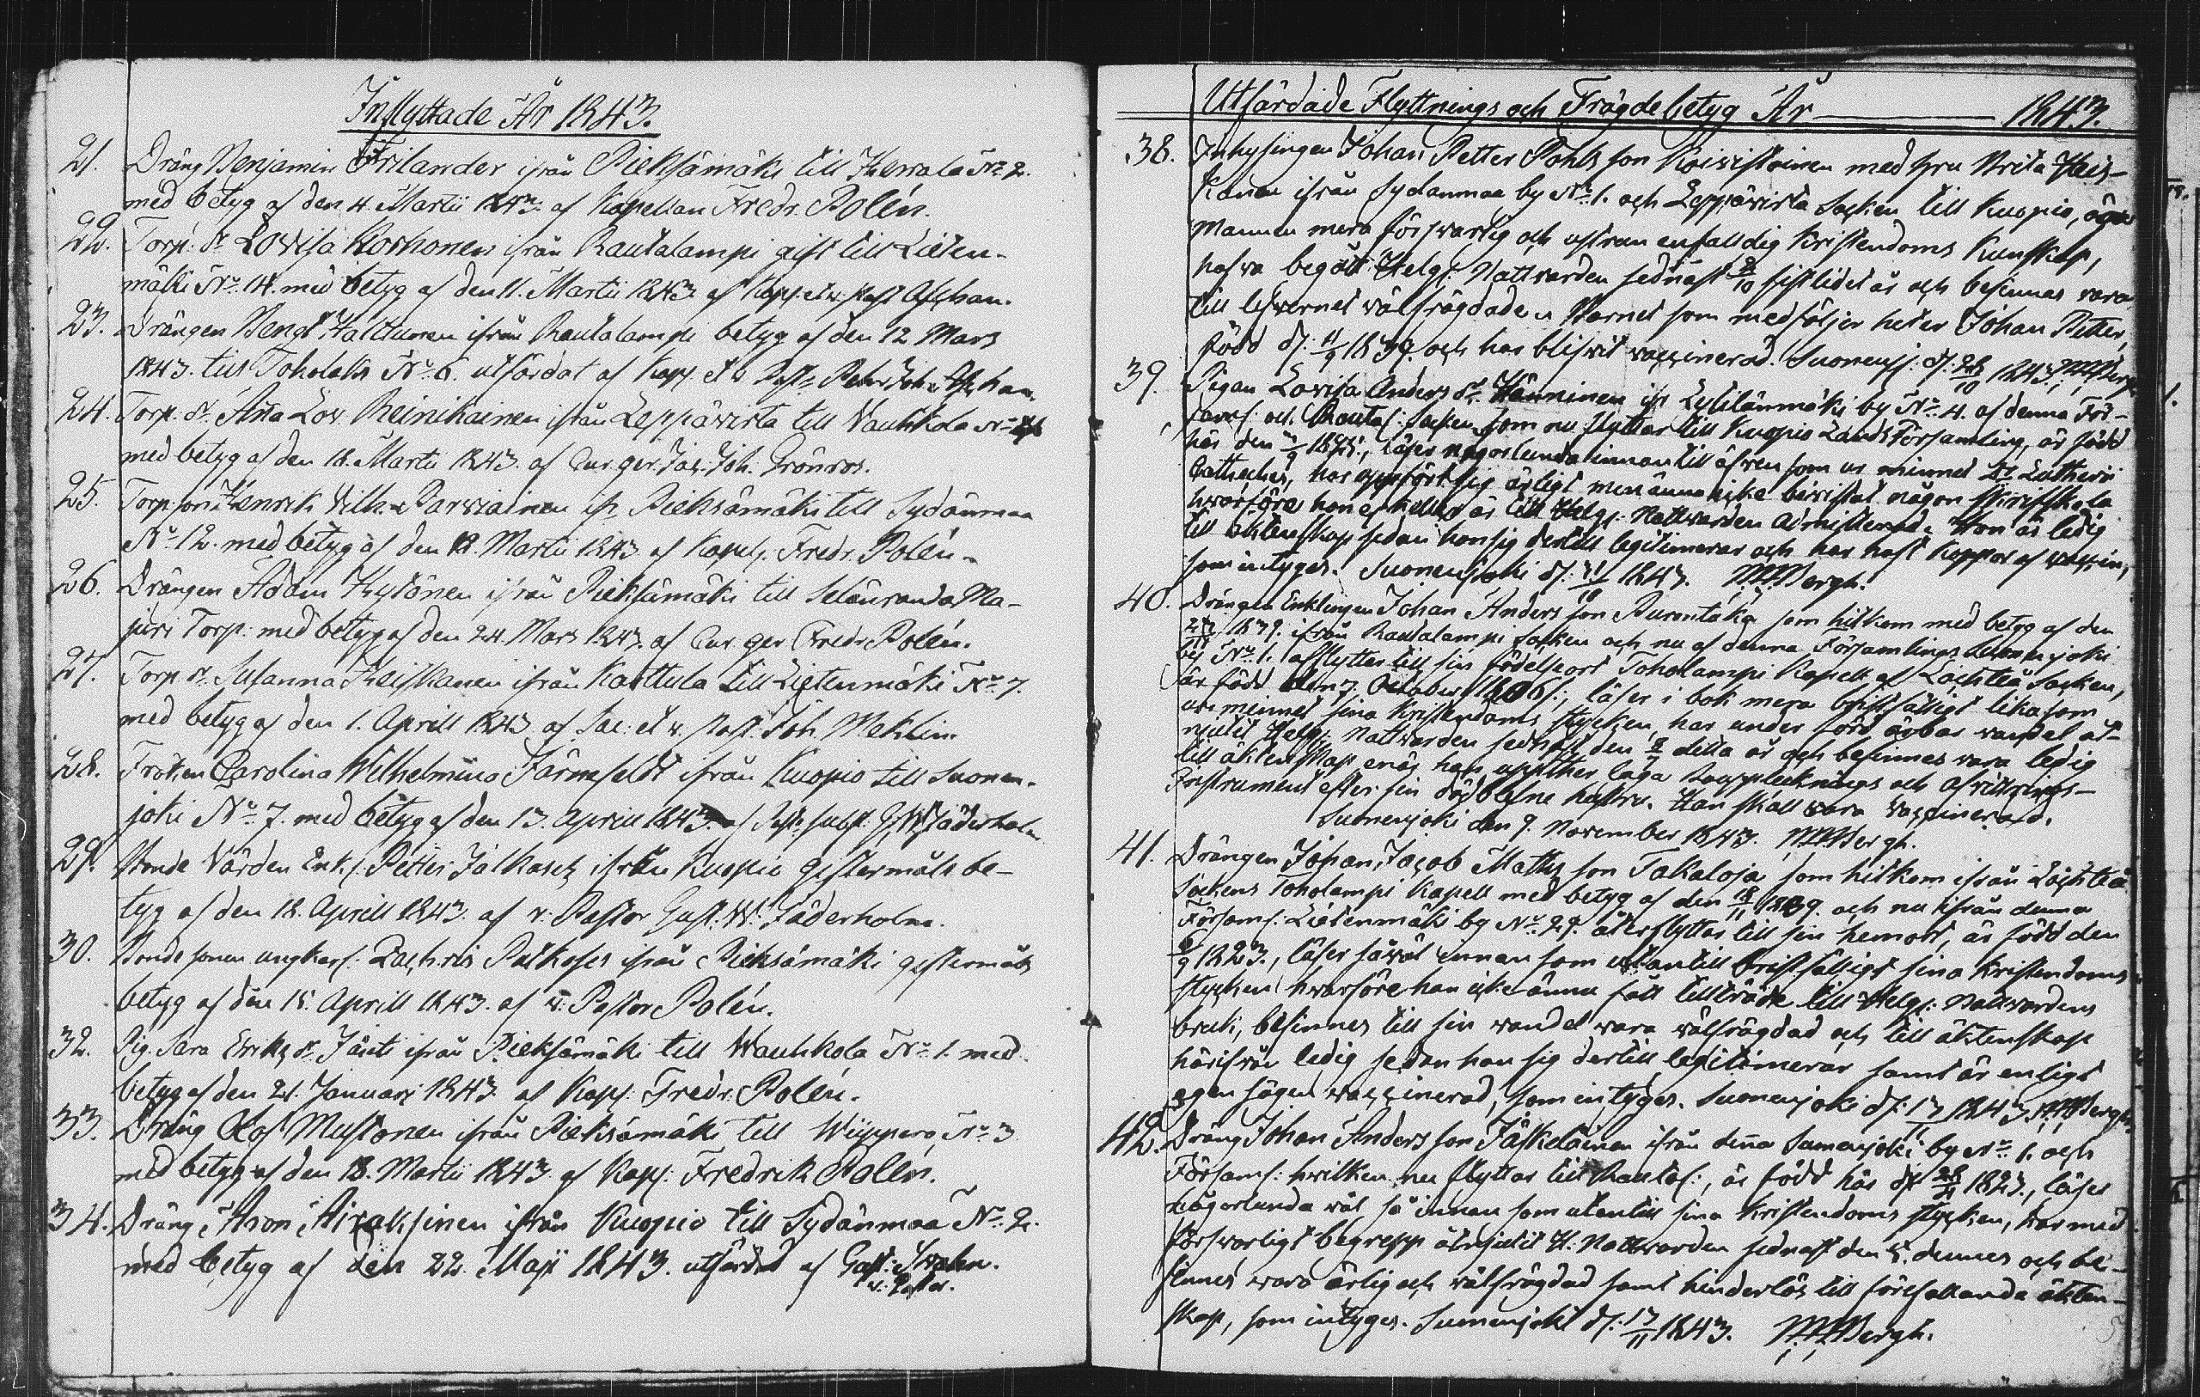 Inflyttade År 1843.
21. Dräng Benjamin Frilander ifrån Pieksämäki till Herrala No 2.
med betyg af den 4. Martii 1843. af Kapellan Fredr. Polén.
22. Torp: dr Lovisa Korhonen ifrån Rautalampi gift till Lieten-
mäki No 14. med betyg af den 11. Martii 1843. af Kapp. et v. Past. Aschan.
23. Drängen Bengt Halttunen ifrån Rautalampi betyg af den 12 Mars
1843. till Toholaks No 6. utfärdat af Kapp. et v. Past. Petr. Joh. Aschan.
24. Torp. dr. Aña Lov. Reinikainen ifrån Leppävirta till Vauhkola No
med betyg af den 18. Martii 1843. af Cur. ger. Joh. Grönros.
25. Torp. son Henrik Vilh. Parviainen ifr. Pieksämäki till Sydänmaa
No 12. med betyg af den 18. Martii 1843 af Kapell. Fredr. Polén.
26. Drängen Adam Hytönen ifrån Pieksämäki till Selänranda Ma-
juri Torp. med betyg af den 24. Mars 1843. af Cur. ger. Fredr. Polén.
27. Torp. dr. Susanna Heiskanen ifrån Karttula till Lietenmäki No 7.
med betyg af den 1. Aprill 1843 af Sac. et v. Past. Joh. Mehlin.
28. Fröken Carolina Wilhelmina Järnefeldt ifrån Kuopio till Suonen-
joki No 7. med betyg af den 13. Aprill 1843. af Past. subst. G. W. Zäderholm
29. Bonde Värden Enk. Petter Jalkasen ifrån Kuopio giftermåls be-
tyg af den 18. Aprill 1843. af v. Pastor Gust. W. Zäderholm.
30. Bonde sonen ungkarl. Zachris Puikoses ifrån Pieksämäki giftermåls
betyg af den 15. Aprill 1843. af v. Pastor Polén.
32. Pig. Sara Eriks dr. Jänti ifrån Pieksämäki till Wauhkola No 1. med
betyg af den 21. Januari 1843. af Kapp. Fredr. Polén.
33. Dräng Olof Mustonen ifrån Pieksämäki till Wiipperо No 3
med betyg af den 18. Martii 1843 af Kapp. Fredrik Polén.
34. Dräng Aron Airaksinen ifrån Kuopio till Sydänmaa No 2.
med betyg af den 22. Maji 1843. utfärdat af Gust.
v. Pastor.
Utfärdade Flyttnings och Frägdebetyg År 1843.
38. Inhysingen Johan Petter Pohls son Koivistoinen med hru Brita Heis-
kanen ifrån Sydänmaa by No 1. och Leppävirta Socken till Kuopio, äger
Mannen mera försvarlig och hustrun enfalldig Kristendoms Kunskap,
hafva begått Helg. Nattvarden sednast sistlidet år och befinnas vara
till lefvernet välfrägdade. Barnet som medföljer heter Johan Petter,
född d. 1839. och har blifvit vaccinerad. Suonenj. d. 28/10 1843. Bergh
39. Pigan Lovisa Anders dr. Hänninen ifr. Lyhlänmäki by No 4. af denna För-
saml. och Rautal. Socken, som nu flyttar till Kuopio Lands Församling, är född
här den läser någorlunda innantill äfven som ur minnet Dr. Lutheri
Catheches, har uppfört sig ärligt men ännu icke bevistat någon skriftskola
hvarföre hon ej heller är till Helg. Nattvarden admitterad. Hon är ledig
till äktenskap sedan hon sig dertill legitimerar och har haft koppor af vaccin,
som intygas. Suonenjoki d. 31/10 1843. Bergh.
40. Drängen Enklingen Johan Anders son Purontaka som hitkom med betyg af den
1839. ifrån Rautalampi socken och nu af denna Församlings Suonenjoki
by No 1. afflyttar till sin födelseort Toholampi Kapell af Lochteå Socken,
är född den 7. October läser i bok mera bristfälligt lika som
ur minnet sina Kristendoms stycken, har under förd ärbar vandel åt-
njutit Helg. Nattvarden sednast den detta år och befinnes vara ledig
till äktenskap enär han uppter laga bouppteckning och afvittrings-
Instrument efter sin död hafne hustru. Han skall vara vaccinerad.
Suonenjoki den 9. November 1843. Bergh.
41. Drängen Johan Jacob Matts son Takaloja, som hitkom ifrån Lochteå
Sockens Toholampi Kapell med betyg af den 18/11 1839. och nu ifrån denna
Församl. Lietenmäki by No 29. återflyttar till sin hemort, är född den
1823., läser såväl innan som utantill bristfälligt sina Kristendoms
stycken hvarföre han icke ännu fått tillträde till Helg. Nattvardens
bruk, befinnes till sin vandel vara välfrägdad och till äktenskap
härifrån ledig sedan han sig dertill legitimerar samt är enligt
egen sägen vaccinerad, som intyges. Suonenjoki d. 13/11 1843. Bergh.
42. Dräng Johan Anders son Jäskeläinen ifrån deña Suonenjoki by No 1. och
Församl. hvilken nu flyttar till Rautal., är född här d. 1823., läser
någorlunda väl så innan som utantill sina Kristendoms stycken, har med
försvarligt begrepp åtnjutit H. Nattvarden sednast den dennes och be-
finnes vara ärlig och välfrägdad samt hinderlös till förefallande äkten-
skap, som intyges. Suonenjoki d. 13/11 1843. Bergh.